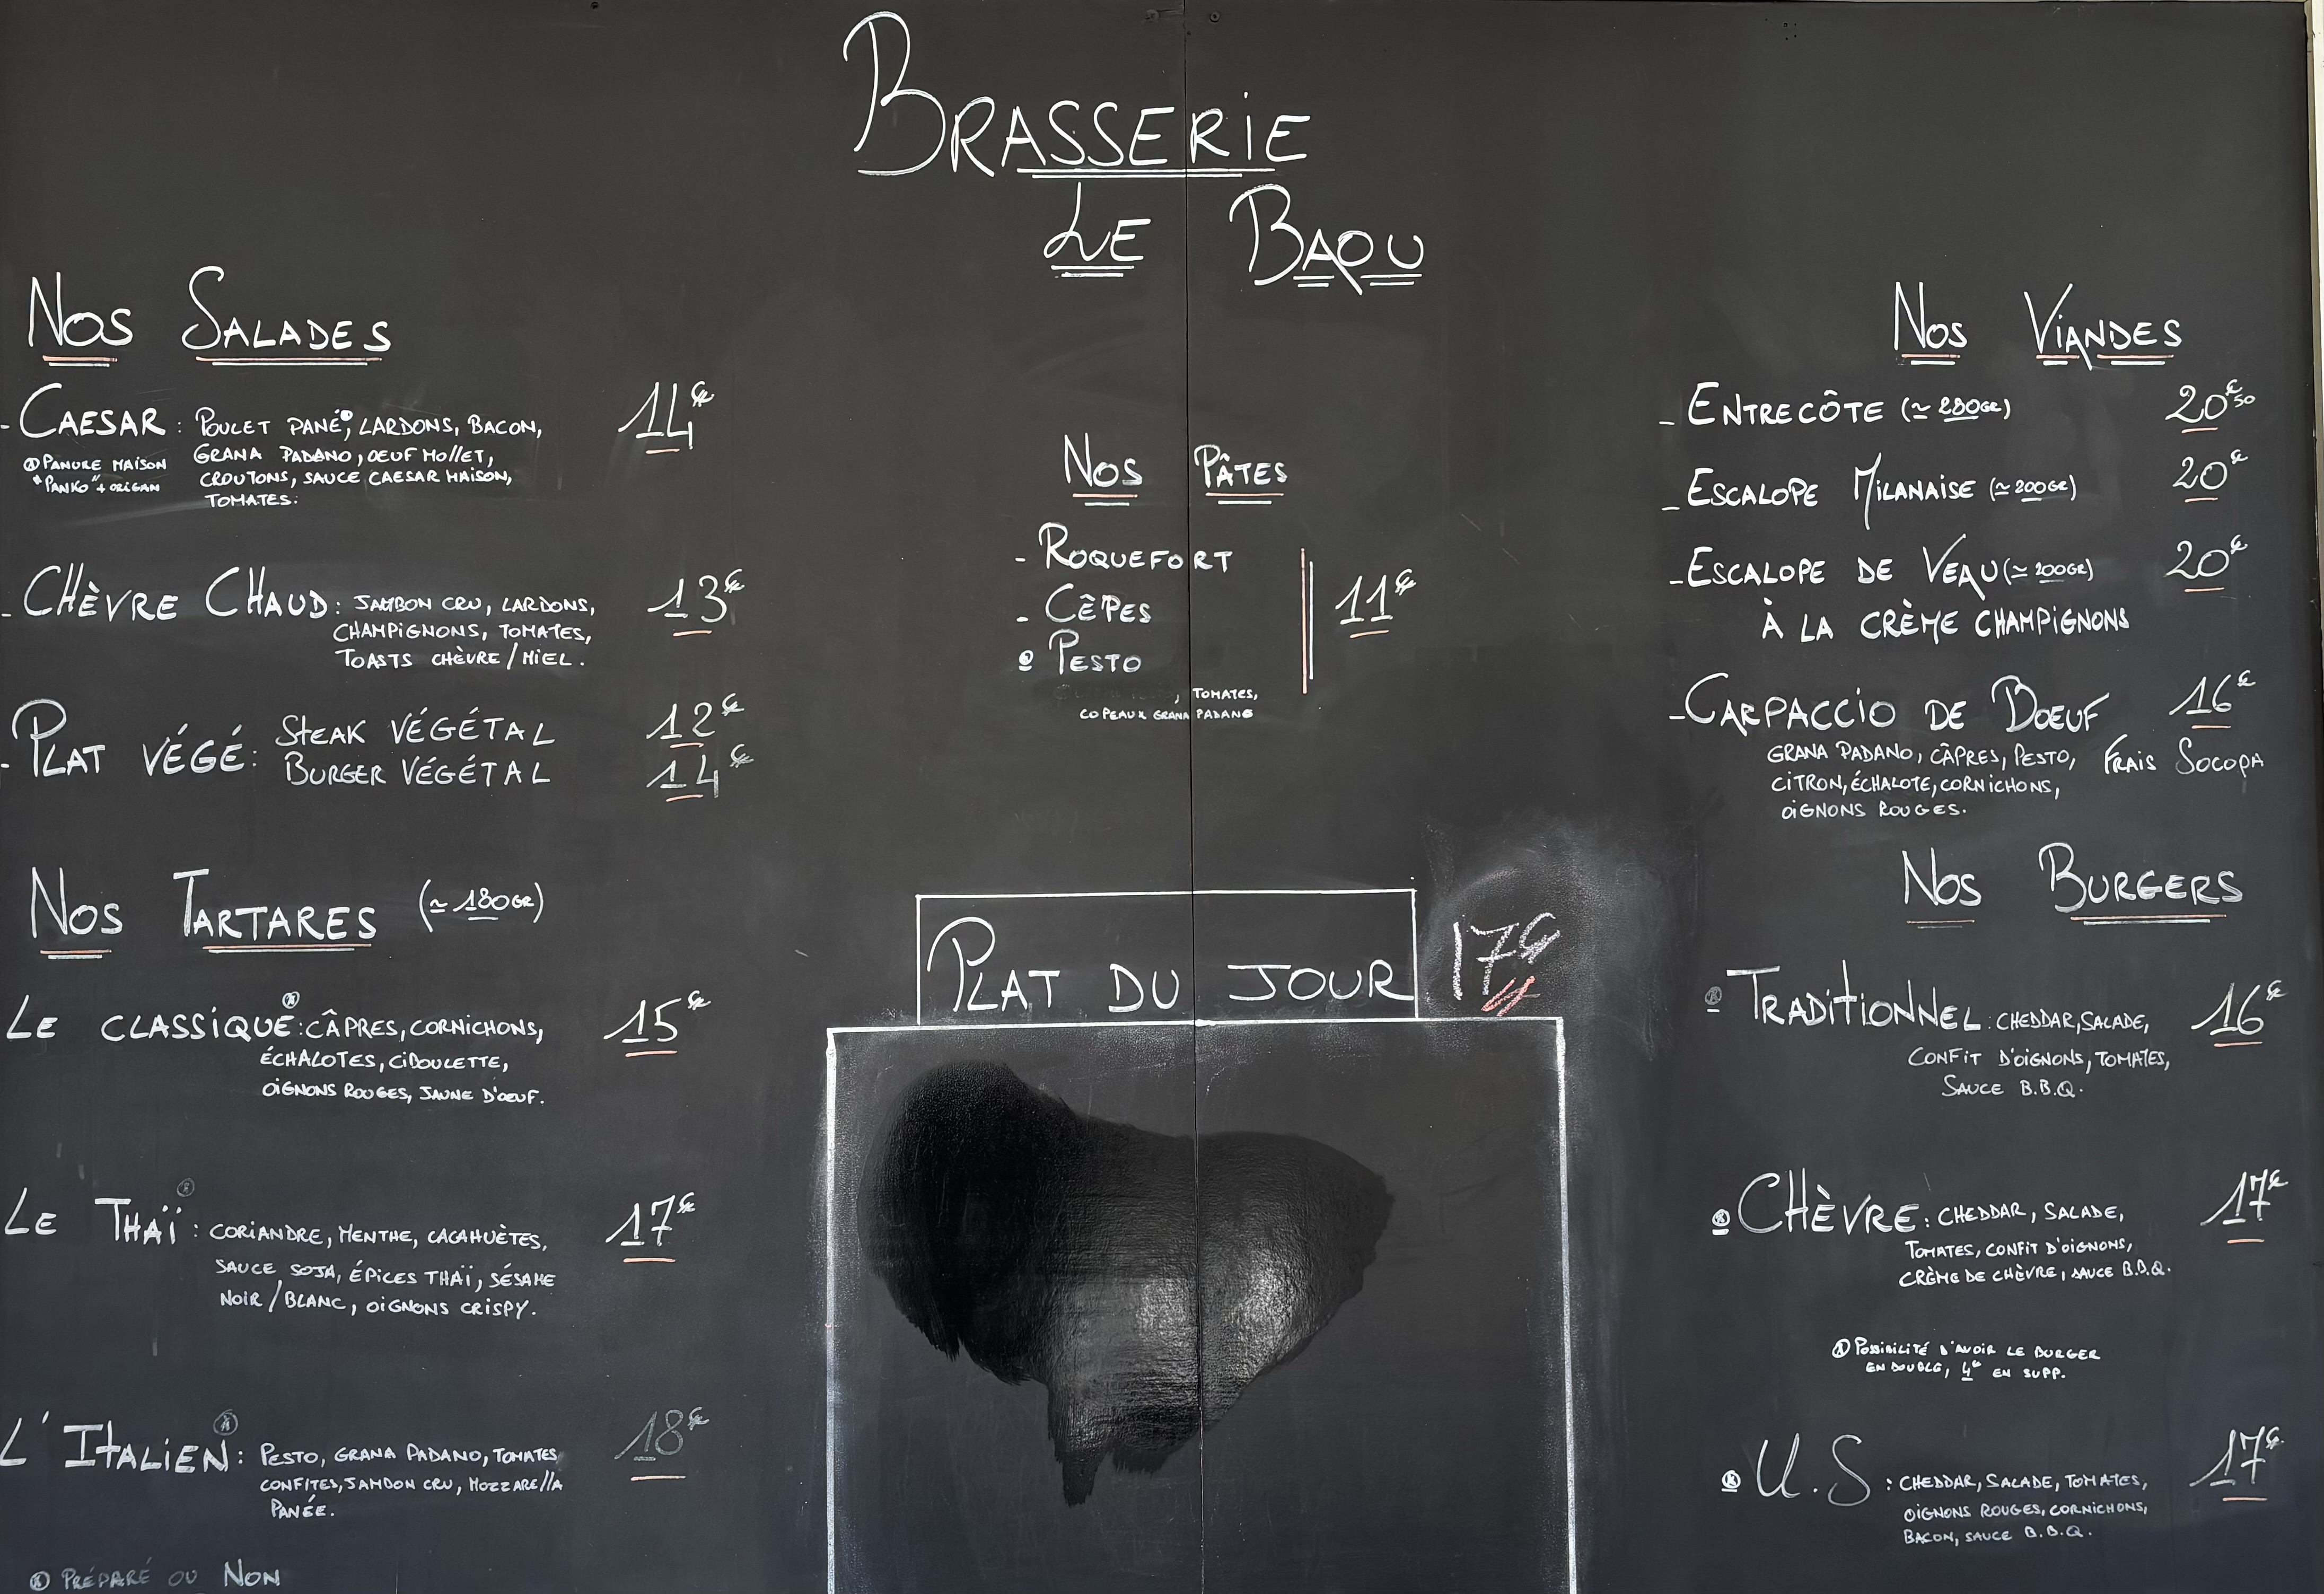 BRASSERIE
LE BAQU
NOS SALADES
- CAESAR : POULET PANÉ, LARDONS, BACON, 14€
GRANA PADANO, OEUF MOLLET,
CROUTONS, SAUCE CAESAR MAISON,
TOMATES.
PANURE MAISON
"PANKO" + ORIGAN
- CHÈVRE CHAUD : JAMBON CRU, LARDONS, 13€
CHAMPIGNONS, TOMATES,
TOASTS CHÈVRE / MIEL.
- PLAT VÉGÉ : STEAK VÉGÉTAL 12€
BURGER VÉGÉTAL 14€
NOS TARTARES (≃ 180GR)
LE CLASSIQUE : CÂPRES, CORNICHONS, 15€
ÉCHALOTES, CIBOULETTE,
OIGNONS ROUGES, JAUNE D'OEUF.
LE THAÏ : CORIANDRE, MENTHE, CACAHUÈTES, 17€
SAUCE SOJA, ÉPICES THAÏ, SÉSAME
NOIR / BLANC, OIGNONS CRISPY.
L'ITALIEN : PESTO, GRANA PADANO, TOMATES 18€
CONFITES, JAMBON CRU, MOZZARELLA
PANÉE.
PRÉPARÉ OU NON
NOS PÂTES
- ROQUEFORT
- CÊPES 11€
PESTO
, TOMATES,
COPEAUX GRANA PADANO
PLAT DU JOUR 17€
NOS VIANDES
- ENTRECÔTE (≃ 280GR) 20€50
- ESCALOPE MILANAISE (≃ 200GR) 20€
- ESCALOPE DE VEAU (≃ 200GR) 20€
À LA CRÈME CHAMPIGNONS
- CARPACCIO DE BOEUF 16€
GRANA PADANO, CÂPRES, PESTO, FRAIS SOCOPA
CITRON, ÉCHALOTE, CORNICHONS,
OIGNONS ROUGES.
NOS BURGERS
TRADITIONNEL : CHEDDAR, SALADE, 16€
CONFIT D'OIGNONS, TOMATES,
SAUCE B.B.Q.
CHÈVRE : CHEDDAR, SALADE, 17€
TOMATES, CONFIT D'OIGNONS,
CRÈME DE CHÈVRE, SAUCE B.B.Q.
POSSIBILITÉ D'AVOIR LE BURGER
EN DOUBLE, 4€ EN SUPP.
U.S : CHEDDAR, SALADE, TOMATES, 17€
OIGNONS ROUGES, CORNICHONS,
BACON, SAUCE B.B.Q.